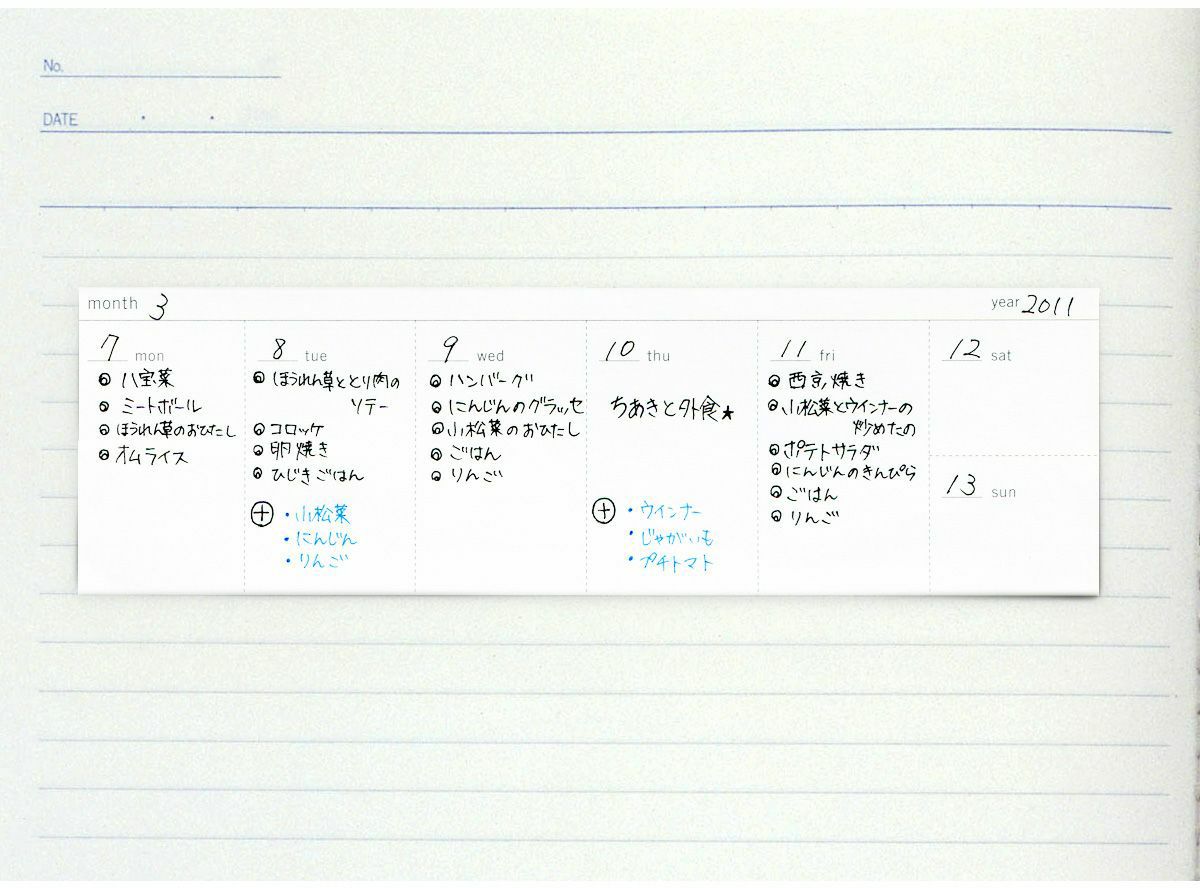 No.
DATE ・ ・
month 3
year 2011
7 mon
◎ 八宝菜
◎ ミートボール
◎ ほうれん草のおひたし
◎ オムライス
8 tue
◎ ほうれん草ととり肉の
ソテー
◎ コロッケ
◎ 卵焼き
◎ ひじきごはん
⊕ ・小松菜
・にんじん
・りんご
9 wed
◎ ハンバーグ
◎ にんじんのグラッセ
◎ 小松菜のおひたし
◎ ごはん
◎ りんご
10 thu
ちあきと外食★
⊕ ・ウインナー
・じゃがいも
・プチトマト
11 fri
◎ 西京焼き
◎ 小松菜とウインナーの
炒めたの
◎ ポテトサラダ
◎ にんじんのきんぴら
◎ ごはん
◎ りんご
12 sat
13 sun